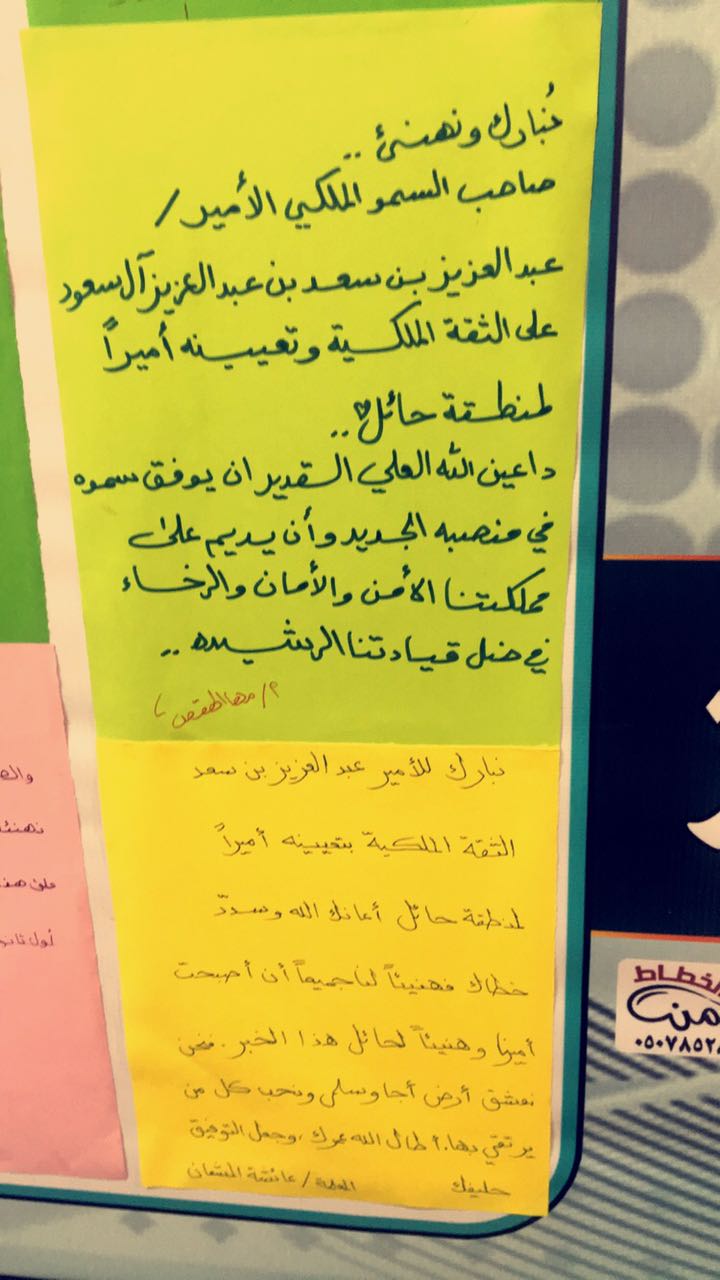 نُبارك ونهنئ ..
صاحب السمو الملكي الأمير /
عبد العزيز بن سعد بن عبد العزيز آل سعود
على الثقة الملكية وتعيينه أميراً
لمنطقة حائل ..
داعين الله العلي القدير ان يوفق سموه
في منصبه الجديد وأن يديم على
مملكتنا الأمن والأمان والرخاء
في ضل قيادتنا الرشيده ..
م/ مها
نبارك للأمير عبد العزيز بن سعد
الثقة الملكية بتعيينه أميراً
لمنطقة حائل أعانك الله وسدّد
خطاك فهنيئاً لنا جميعاً أن أصبحت
أميرنا وهنيئاً لحائل هذا الخبر . فنحن
نعشق أرض أجا وسلمى ونحب كل من
يرتقي بها . أطال الله عمرك ، وجعل التوفيق
حليفك المعلمة / عائشة
نهنئ
أول ثانو
الخطاط
من
٠٥٠٧٨٥٢٨